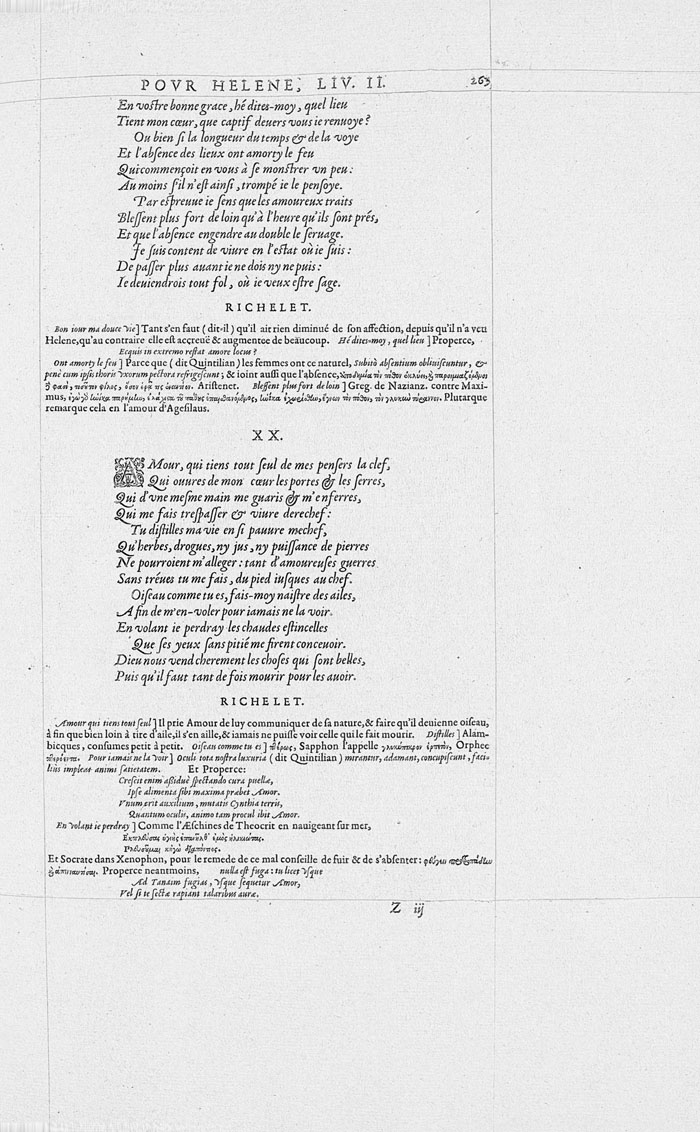 POVR HELENE, LIV. II. 263
En vostre bonne grace, hé dites-moy, quel lieu
Tient mon cœur, que captif deuers vous ie renuoye?
Ou bien si la longueur du temps & de la voye
Et l'absence des lieux ont amorty le feu
Qui commençoit en vous à se monstrer vn peu:
Au moins s'il n'est ainsi, trompé ie le pensoye.
Par espreuue ie sens que les amoureux traits
Blessent plus fort de loin qu'à l'heure qu'ils sont prés,
Et que l'absence engendre au double le seruage.
Ie suis content de viure en l'estat où ie suis:
De passer plus auant ie ne dois ny ne puis:
Ie deuiendrois tout fol, où ie veux estre sage.
RICHELET.
Bon iour ma douce vie] Tant s'en faut (dit-il) qu'il ait rien diminué de son affection, depuis qu'il n'a veu
Helene, qu'au contraire elle est accreuë & augmentee de beaucoup. Hé dites-moy, quel lieu] Properce,
Ecquis in extremo restat amore locus?
Ont amorty le feu] Parce que (dit Quintilian) les femmes ont ce naturel, Subitò absentium obliuiscuntur, &
penè cum ipsis thoris vxorum pectora refrigescunt; & ioint aussi que l'absence,
Aristenet. Blessent plus fort de loin] Greg. de Nazianz. contre Maxi-
mus, Plutarque
remarque cela en l'amour d'Agesilaus.
XX.
AMour, qui tiens tout seul de mes pensers la clef,
Qui ouures de mon cœur les portes & les serres,
Qui d'vne mesme main me guaris & m'enferres,
Qui me fais trespasser & viure derechef:
Tu distilles ma vie en si pauure mechef,
Qu'herbes, drogues, ny jus, ny puissance de pierres
Ne pourroient m'alleger: tant d'amoureuses guerres
Sans tréues tu me fais, du pied iusques au chef.
Oiseau comme tu es, fais-moy naistre des ailes,
A fin de m'en-voler pour iamais ne la voir.
En volant ie perdray les chaudes estincelles
Que ses yeux sans pitié me firent conceuoir.
Dieu nous vend cherement les choses qui sont belles,
Puis qu'il faut tant de fois mourir pour les auoir.
RICHELET.
Amour qui tiens tout seul] Il prie Amour de luy communiquer de sa nature, & faire qu'il deuienne oiseau,
à fin que bien loin à tire d'aile, il s'en aille, & iamais ne puisse voir celle qui le fait mourir. Distilles] Alam-
bicques, consumes petit à petit. Oiseau comme tu es] Sapphon l'appelle Orphee
Pour iamais ne la voir] Oculi tota nostra luxuria (dit Quintilian) mirantur, adamant, concupiscunt, faci-
liùs impleas animi satietatem. Et Properce:
Crescit enim assiduè spectando cura puellæ,
Ipse alimenta sibi maxima præbet Amor.
Vnum erit auxilium, mutatis Cynthia terris,
Quantum oculis, animo tam procul ibit Amor.
En volant ie perdray] Comme l'Æschines de Theocrit en nauigeant sur mer,
Et Socrate dans Xenophon, pour le remede de ce mal conseille de fuir & de s'absenter:
Properce neantmoins, nulla est fuga: tu licet vsque
Ad Tanaim fugias, vsque sequetur Amor,
Vel si te sectæ rapiant talaribus auræ.
Z iij